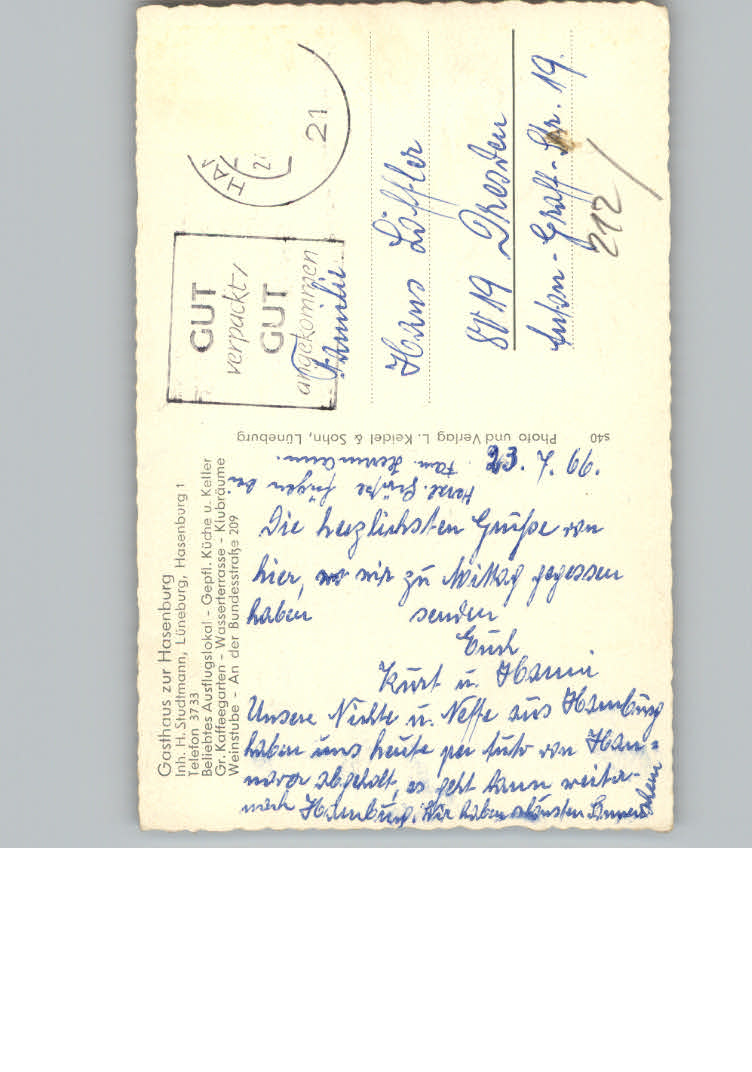 Gasthaus zur Hasenburg
Inh. H. Studtmann, Lüneburg, Hasenburg 1
Telefon 3733
Beliebtes Ausflugslokal - Gepfl. Küche u. Keller
Gr. Kaffeegarten - Wasserterrasse - Klubräume
Weinstube - An der Bundesstraße 209
23. 7. 66.
Die herzlichsten Grüße von
hier, wo wir zu Mittag gegessen
haben senden
Euch
Kurt u. Hanni
Unsere Nichte u. Neffe aus Hamburg
haben uns heute per Auto von Han=
nover abgeholt, es geht dann weiter
nach Hamburg. Wir haben schönsten Sonnenschein
Herzl. Grüße fügen bei
Fam. Herrmann.
Photo und Verlag L. Keidel & Sohn, Lüneburg
s40
HA
21
GUT
verpackt/
GUT
angekommen
Familie
Hans Löffler
8019 Dresden
Anton-Graff-Str. 19.
212/